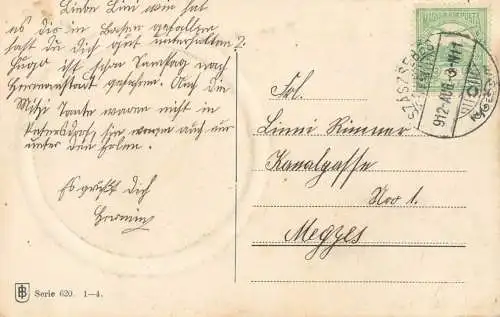 Liebe Lini wie hat
es dir in Baßen gefallen
hast du Dich gut unterhalten?
Hugo ist schon Samstag nach
Hermannstadt gefahren. Auch die
Mitzi Tante waren nicht in
sie waren auch nur
unter den
Es grüßt Dich
Hermin
MAGYAR KIR. POSTA
SZÁSZSEBES
912 AUG
Frl.
Linni Rimner
Kanalgasse
Nro 1.
Megyes
Serie 620. 1—4.